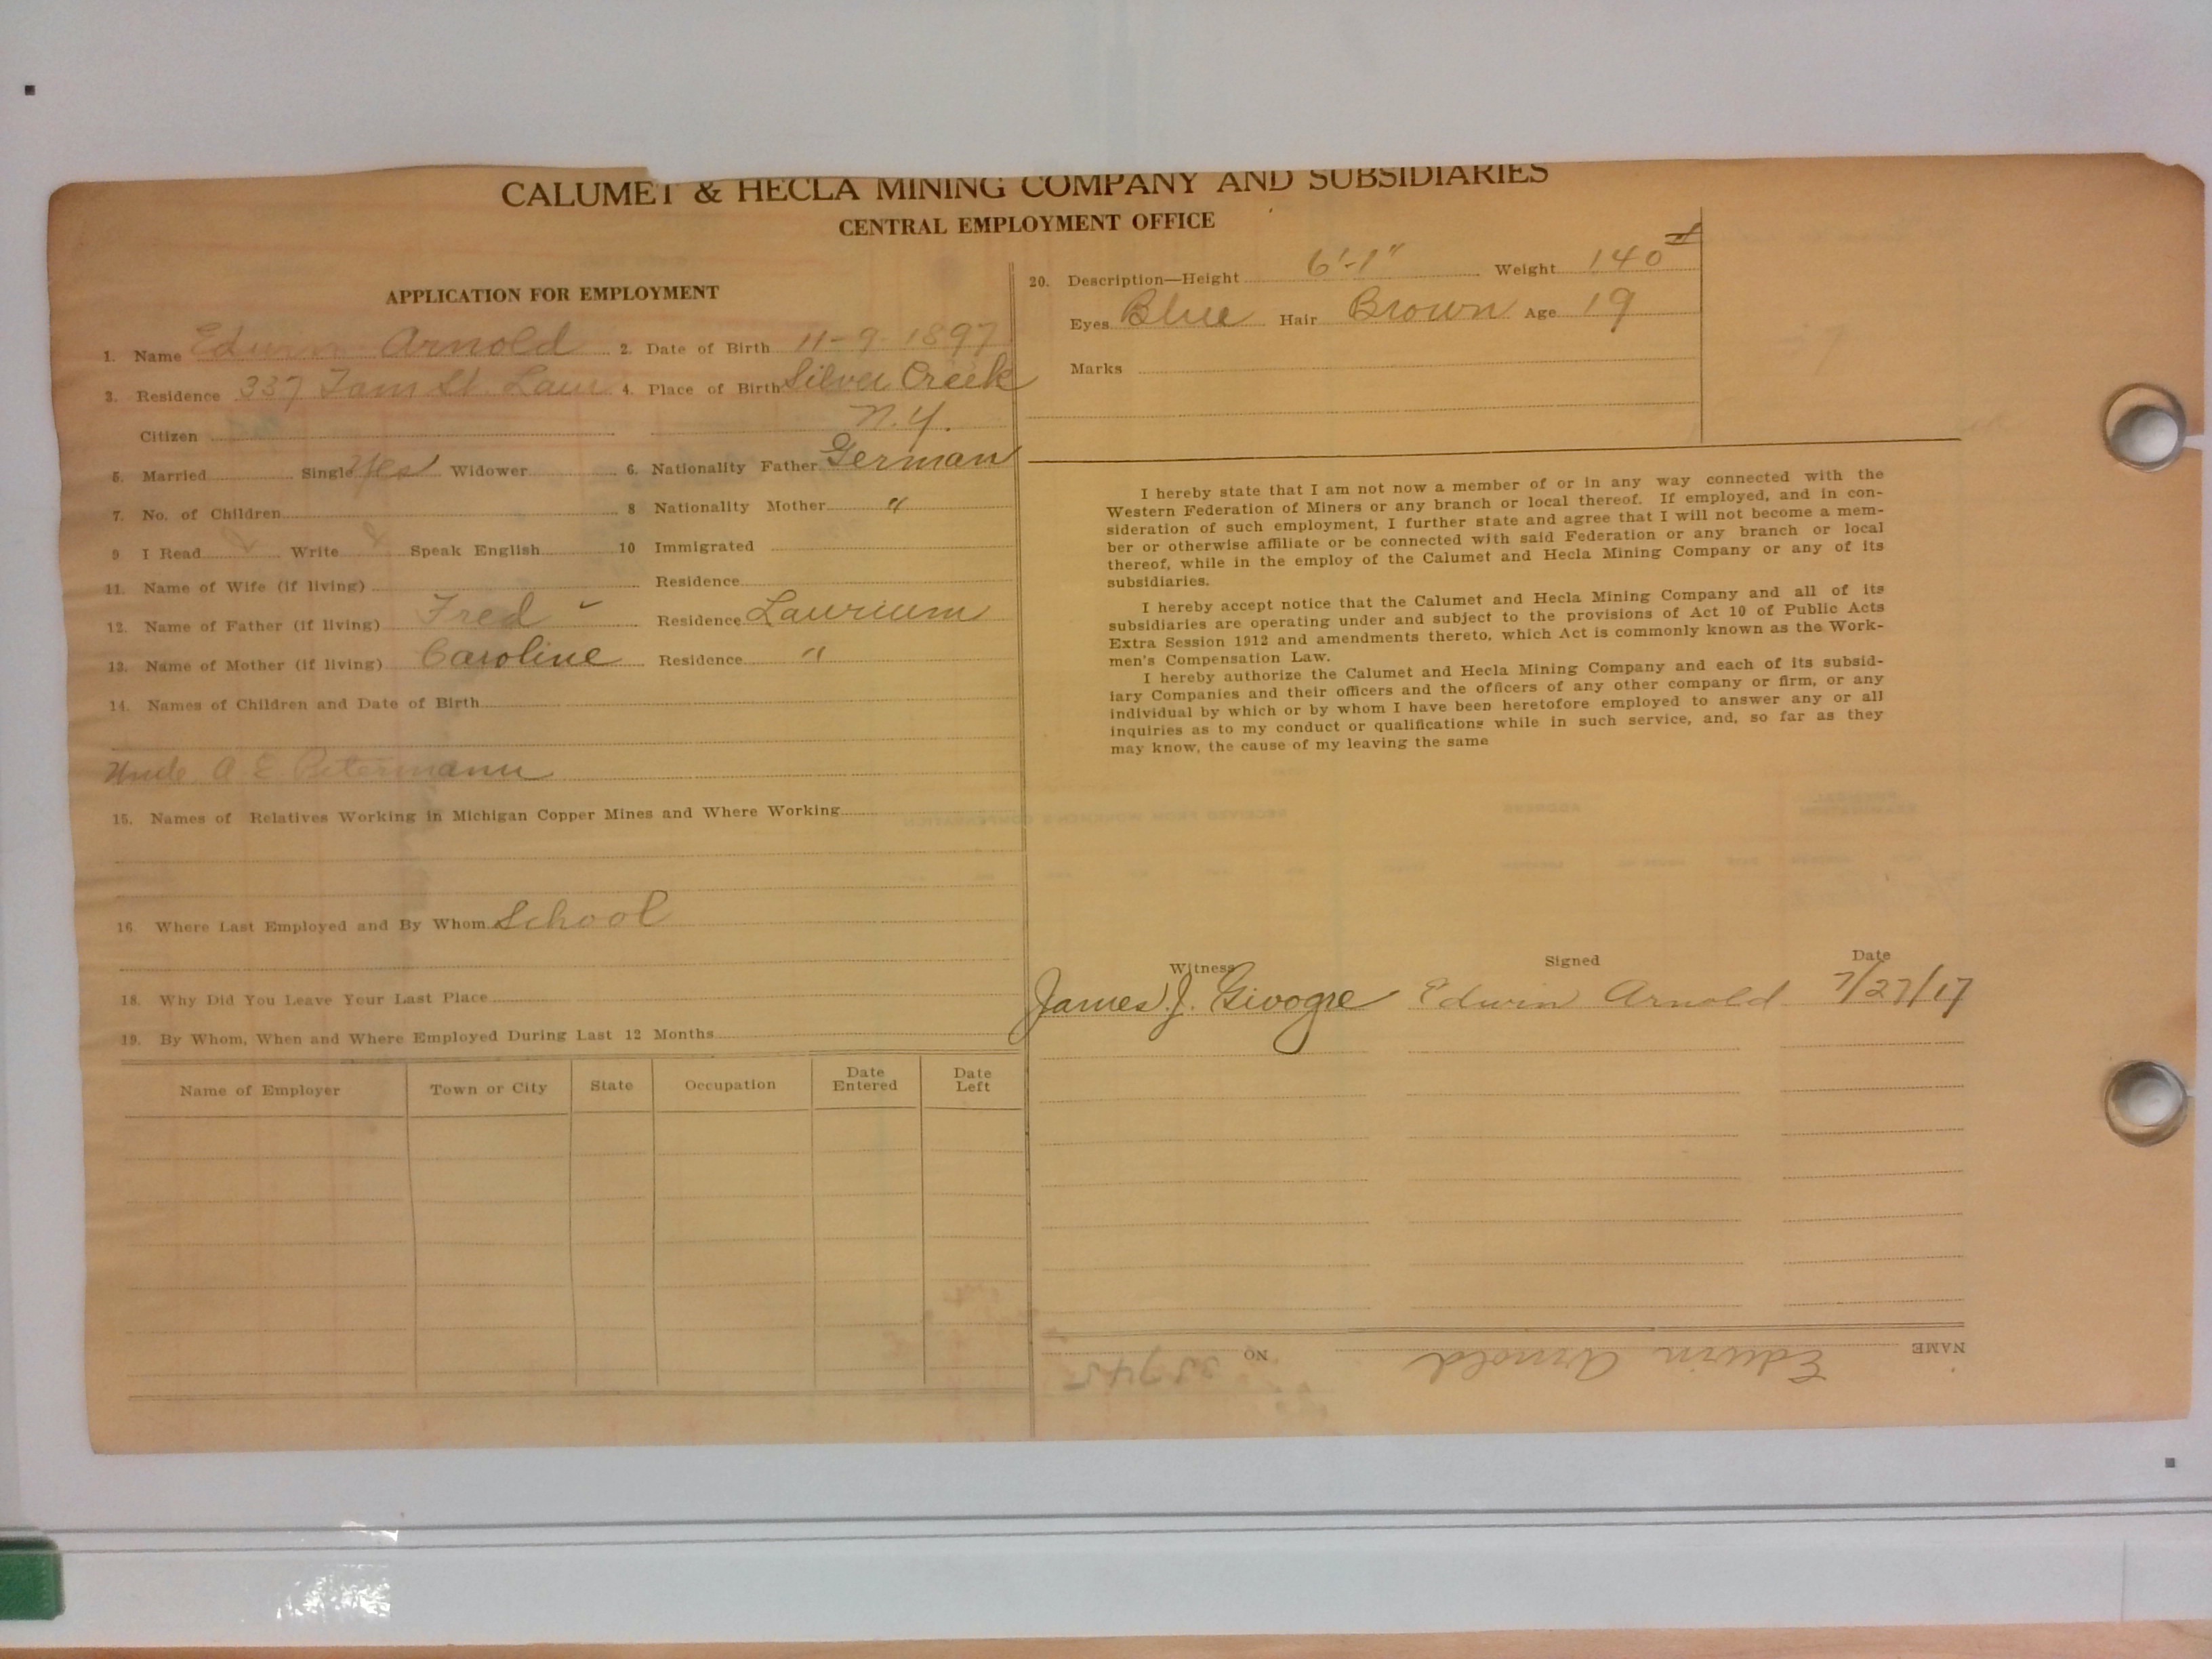 CALUMET & HECLA MINING COMPANY AND SUBSIDIARIES
CENTRAL EMPLOYMENT OFFICE
APPLICATION FOR EMPLOYMENT
1. Name Edwin Arnold 2. Date of Birth 11-9-1897
3. Residence 337 Tam St. Laur 4. Place of Birth Silver Creek
Citizen N.Y.
5. Married Single Yes Widower 6. Nationality Father German
7. No. of Children 8 Nationality Mother "
9. I Read Write Speak English 10 Immigrated
11. Name of Wife (if living) Residence
12. Name of Father (if living) Fred Residence Laurium
13. Name of Mother (if living) Caroline Residence "
14. Names of Children and Date of Birth
Uncle A E Petermann
15. Names of Relatives Working in Michigan Copper Mines and Where Working
16. Where Last Employed and By Whom School
18. Why Did You Leave Your Last Place
19. By Whom, When and Where Employed During Last 12 Months
Name of Employer Town or City State Occupation Date Entered Date Left
20. Description—Height 6'-1" Weight 140#
Eyes Blue Hair Brown Age 19
Marks
I hereby state that I am not now a member of or in any way connected with the
Western Federation of Miners or any branch or local thereof. If employed, and in con-
sideration of such employment, I further state and agree that I will not become a mem-
ber or otherwise affiliate or be connected with said Federation or any branch or local
thereof, while in the employ of the Calumet and Hecla Mining Company or any of its
subsidiaries.
I hereby accept notice that the Calumet and Hecla Mining Company and all of its
subsidiaries are operating under and subject to the provisions of Act 10 of Public Acts
Extra Session 1912 and amendments thereto, which Act is commonly known as the Work-
men's Compensation Law.
I hereby authorize the Calumet and Hecla Mining Company and each of its subsid-
iary Companies and their officers and the officers of any other company or firm, or any
individual by which or by whom I have been heretofore employed to answer any or all
inquiries as to my conduct or qualifications while in such service, and, so far as they
may know, the cause of my leaving the same
Witness Signed Date
James J. Givogre Edwin Arnold 7/27/17
NAME Edwin Arnold NO